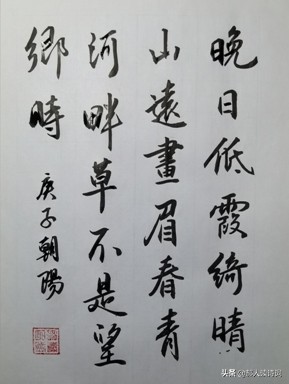 晚日低霞綺晴
山遠畫眉春青
河畔草不是望
鄉時
庚子朝陽
头条